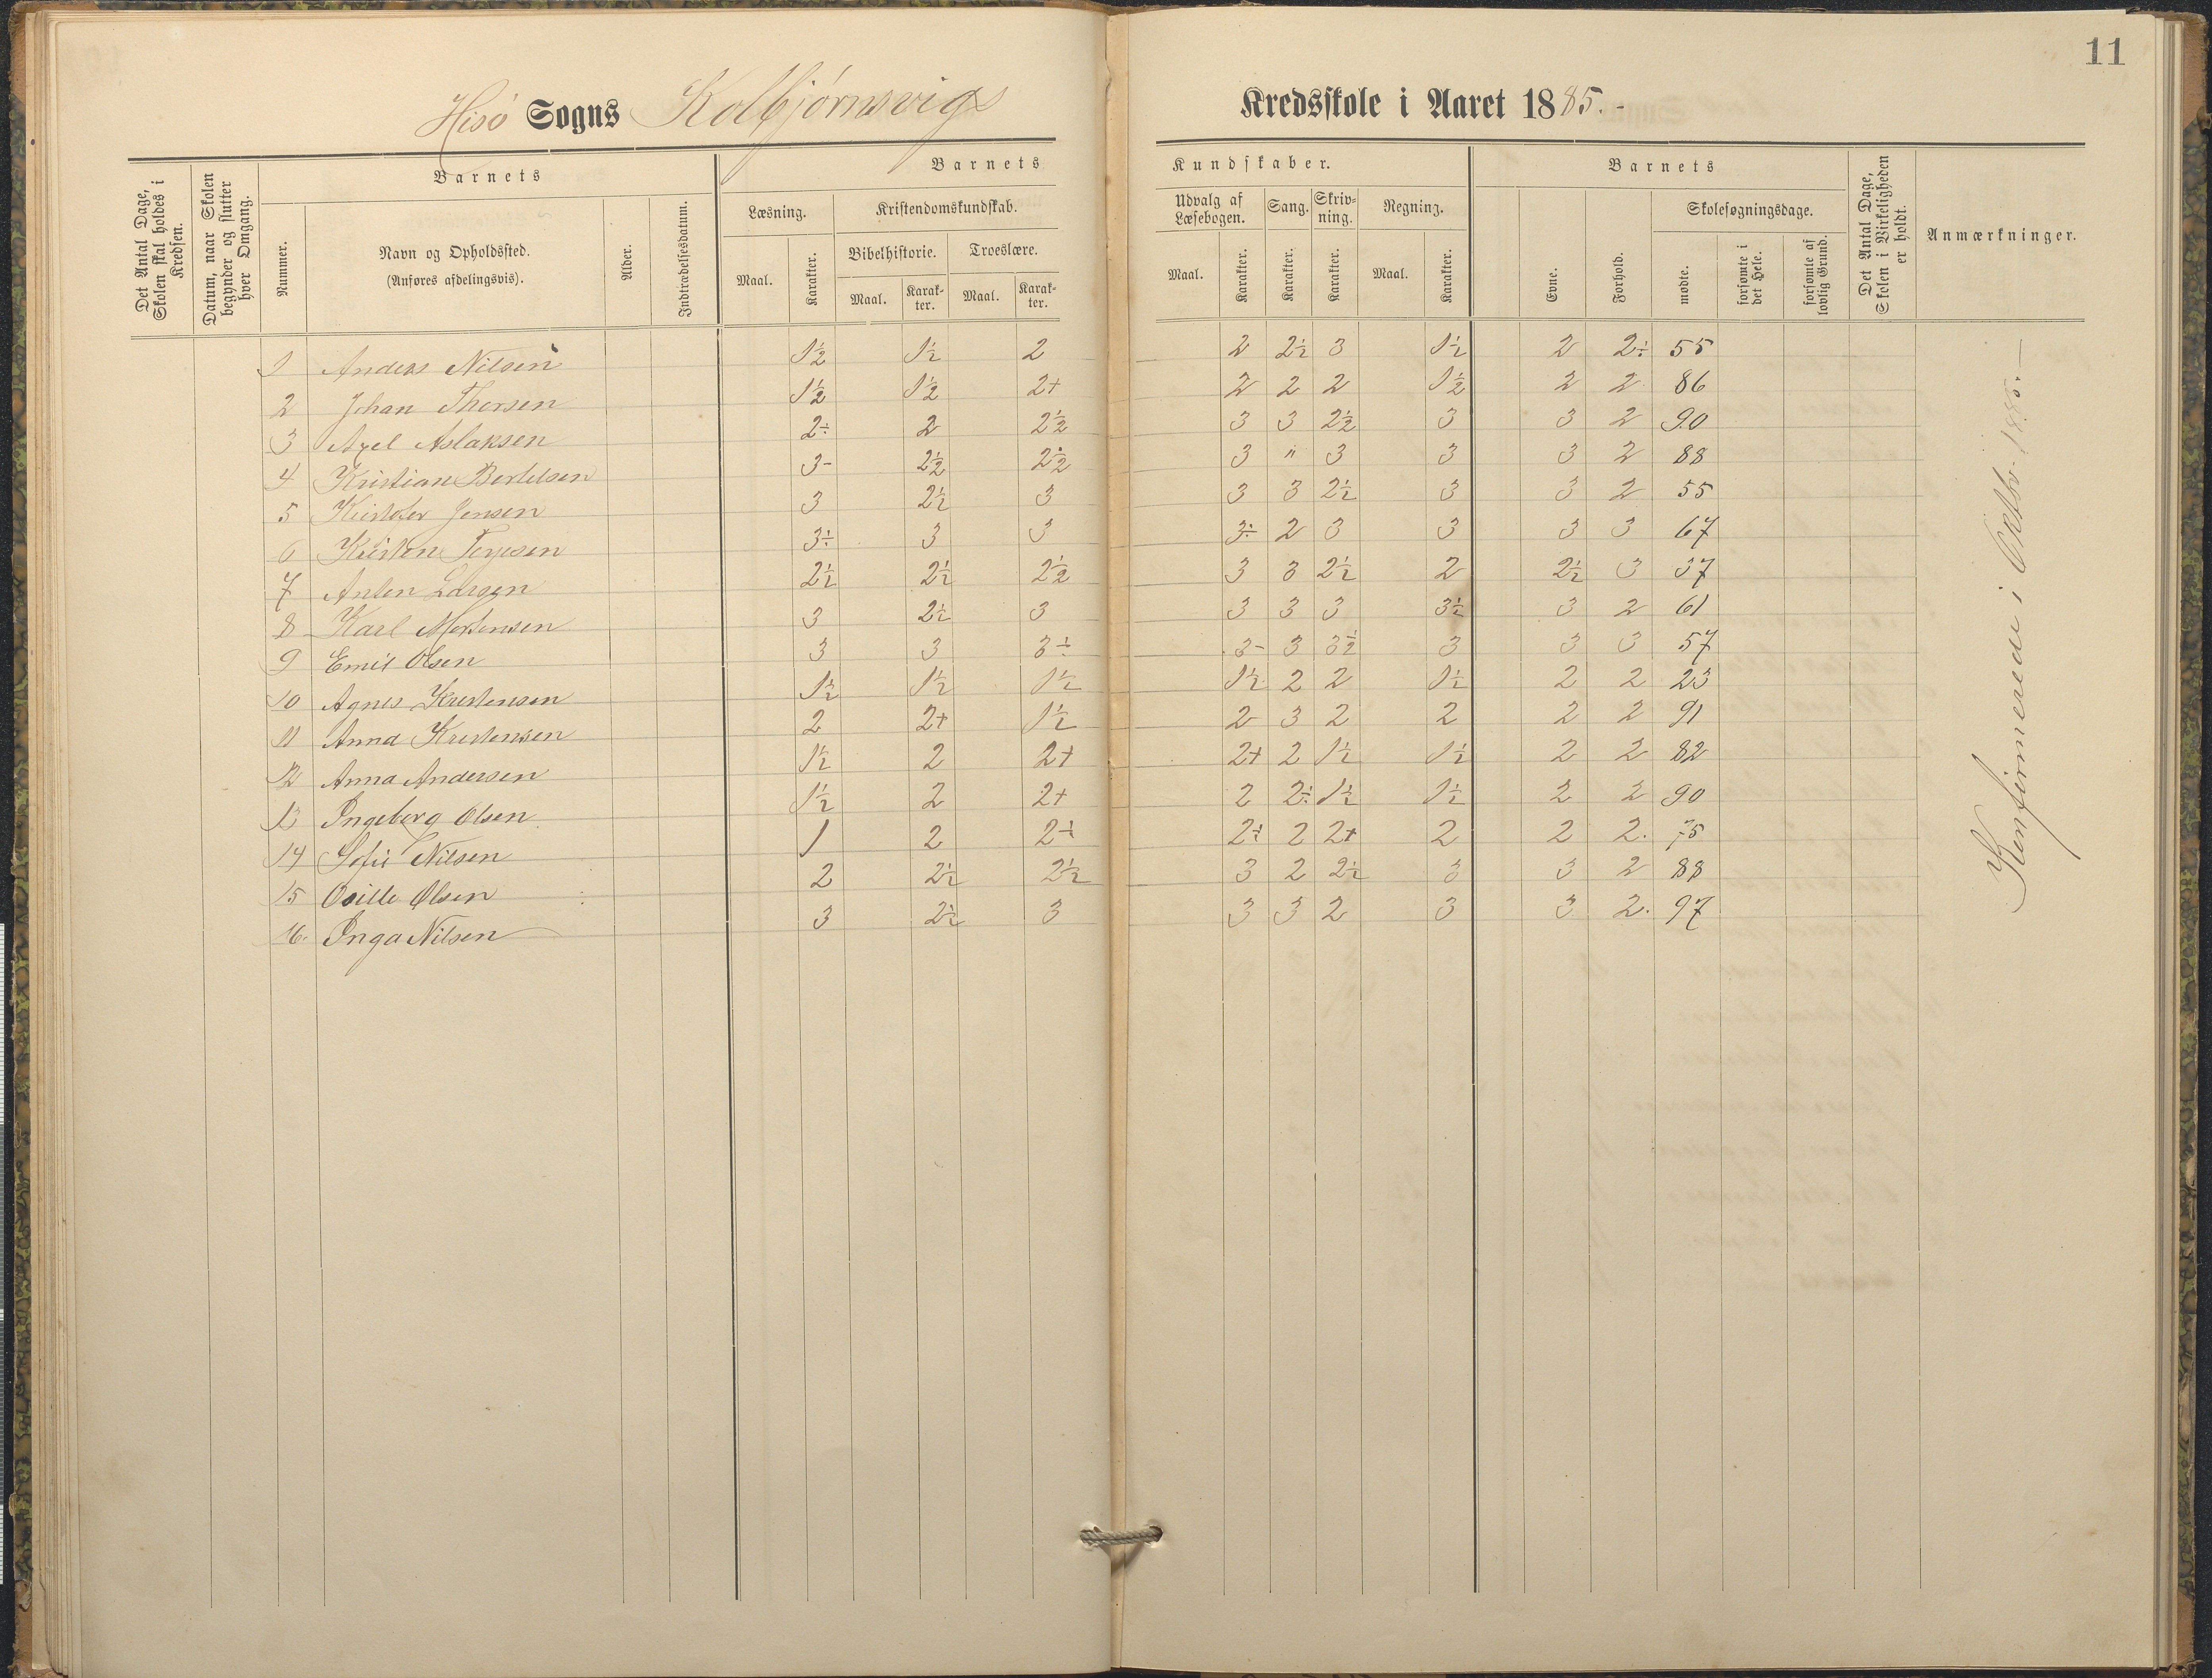 11
Hisö Sogns Kolbjörnsvigs Kredsskole i Aaret 1885.-
Det Antal Dage, Skolen skal holdes i Kredsen.
Datum, naar Skolen begynder og slutter hver Omgang.
Barnets
Nummer.
Navn og Opholdssted.
(Anføres afdelingsvis).
Alder.
Indtrædelsesdatum.
Barnets Kundskaber.
Læsning.
Maal. Karakter.
Kristendomskundskab.
Bibelhistorie. Troeslære.
Maal. Karak-ter. Maal. Karak-ter.
Udvalg af Læsebogen.
Maal. Karakter.
Sang.
Karakter.
Skriv-ning.
Karakter.
Regning.
Maal. Karakter.
Barnets
Evne. Forhold.
Skolesøgningsdage.
mødte. forsømte i det Hele. forsømte af lovlig Grund.
Det Antal Dage, Skolen i Virkeligheden er holdt.
Anmærkninger.
1 Anders Nilsen 1½ 1½ 2 2 2½ 3 1½ 2 2÷ 55
2 Johan Thorsen 1½ 1½ 2+ 2 2 2 1½ 2 2 86
3 Axel Aslaksen 2÷ 2 2½ 3 3 2½ 3 3 2 90
4 Kristian Bertelsen 3- 2½ 2½ 3 " 3 3 3 2 88
5 Kristofer Jensen 3 2½ 3 3 3 2½ 3 3 2 55
6 Kristen Terjesen 3÷ 3 3 3÷ 2 3 3 3 3 67
7 Anton Larsen 2½ 2½ 2½ 3 3 2½ 2 2½ 3 37
8 Karl Mortensen 3 2½ 3 3 3 3 3½ 3 2 61
9 Emil Olsen 3 3 3÷ 3- 3 3½ 3 3 3 57
10 Agnes Kristensen 1½ 1½ 1½ 1½ 2 2 1½ 2 2 23
11 Anna Kristensen 2 2+ 1½ 2 3 2 2 2 2 91
12 Anna Andersen 1½ 2 2+ 2+ 2 1½ 1½ 2 2 82
13 Ingeborg Olsen 1½ 2 2+ 2 2÷ 1½ 1½ 2 2 90
14 Sofie Nilsen 1 2 2÷ 2÷ 2 2+ 2 2 2. 75
15 Osille Olsen 2 2½ 2½ 3 2 2½ 3 3 2 88
16. Inga Nilsen 3 2½ 3 3 3 2 3 3 2. 97
Konfirmerede i Oktbr. 1885.—